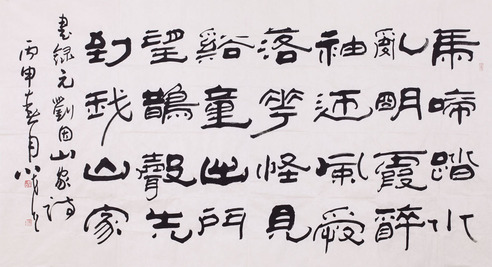 馬啼踏水
亂明霞醉
袖迎風受
落花怪見
谿童出門
望鵲聲先
到我山家
書録元劉因山家詩
丙申春月